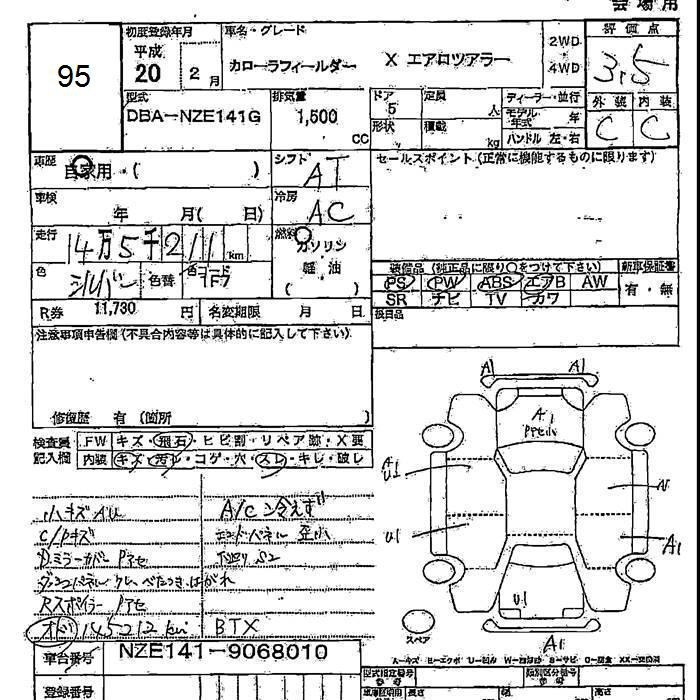 会場用
初度登録年月 車名・グレード 評価点
95 平成 20 2月 カローラフィールダー X エアロツアラー 2WD 4WD 3.5
型式 排気量 ドア 定員 ディーラー・並行 外装 内装
DBA-NZE141G 1,500 cc 5 人 モデル年式 年 C C
形状 積載 kg ハンドル 左・右
車歴 自家用 ( ) シフト AT セールスポイント (正常に機能するものに限ります)
車検 年 月( 日) 冷房 AC
走行 14万5千211km 燃料 ガソリン 軽油 ( )
色 シルバー 色替 色コード 1F7
装備品 (純正品に限り○をつけて下さい) 新車保証書
PS PW ABS エアB AW 有・無
SR ナビ TV カワ
R券 11,730 円 名変期限 月 日 後日品
注意事項申告欄 (不具合内容等は具体的に記入して下さい)
修復歴 有 (箇所 )
検査員記入欄 FW キズ・飛石・ヒビ割・リペア跡・X要
内装 キズ・汚れ・コゲ・穴・スレ・キレ・破レ
小キズ AU A/C 冷えず
C/Pキズ エンドパネル 歪小
Dミラーカバー Pアセ 下廻り S2
ダッシュパネル クレ、べたつき、はがれ
Rスポイラー Pアセ
オド 145212km BTX
A1 A1
A1
Pアセ小
A U1
U1
A1
U1
スペア A1
A=キズ E=エクボ U=凹み W=波跡 S=サビ C=腐食 XX=交換済
車台番号 NZE141-9068010
型式指定番号 類別区分番号
登録番号 長さ 幅 高さ